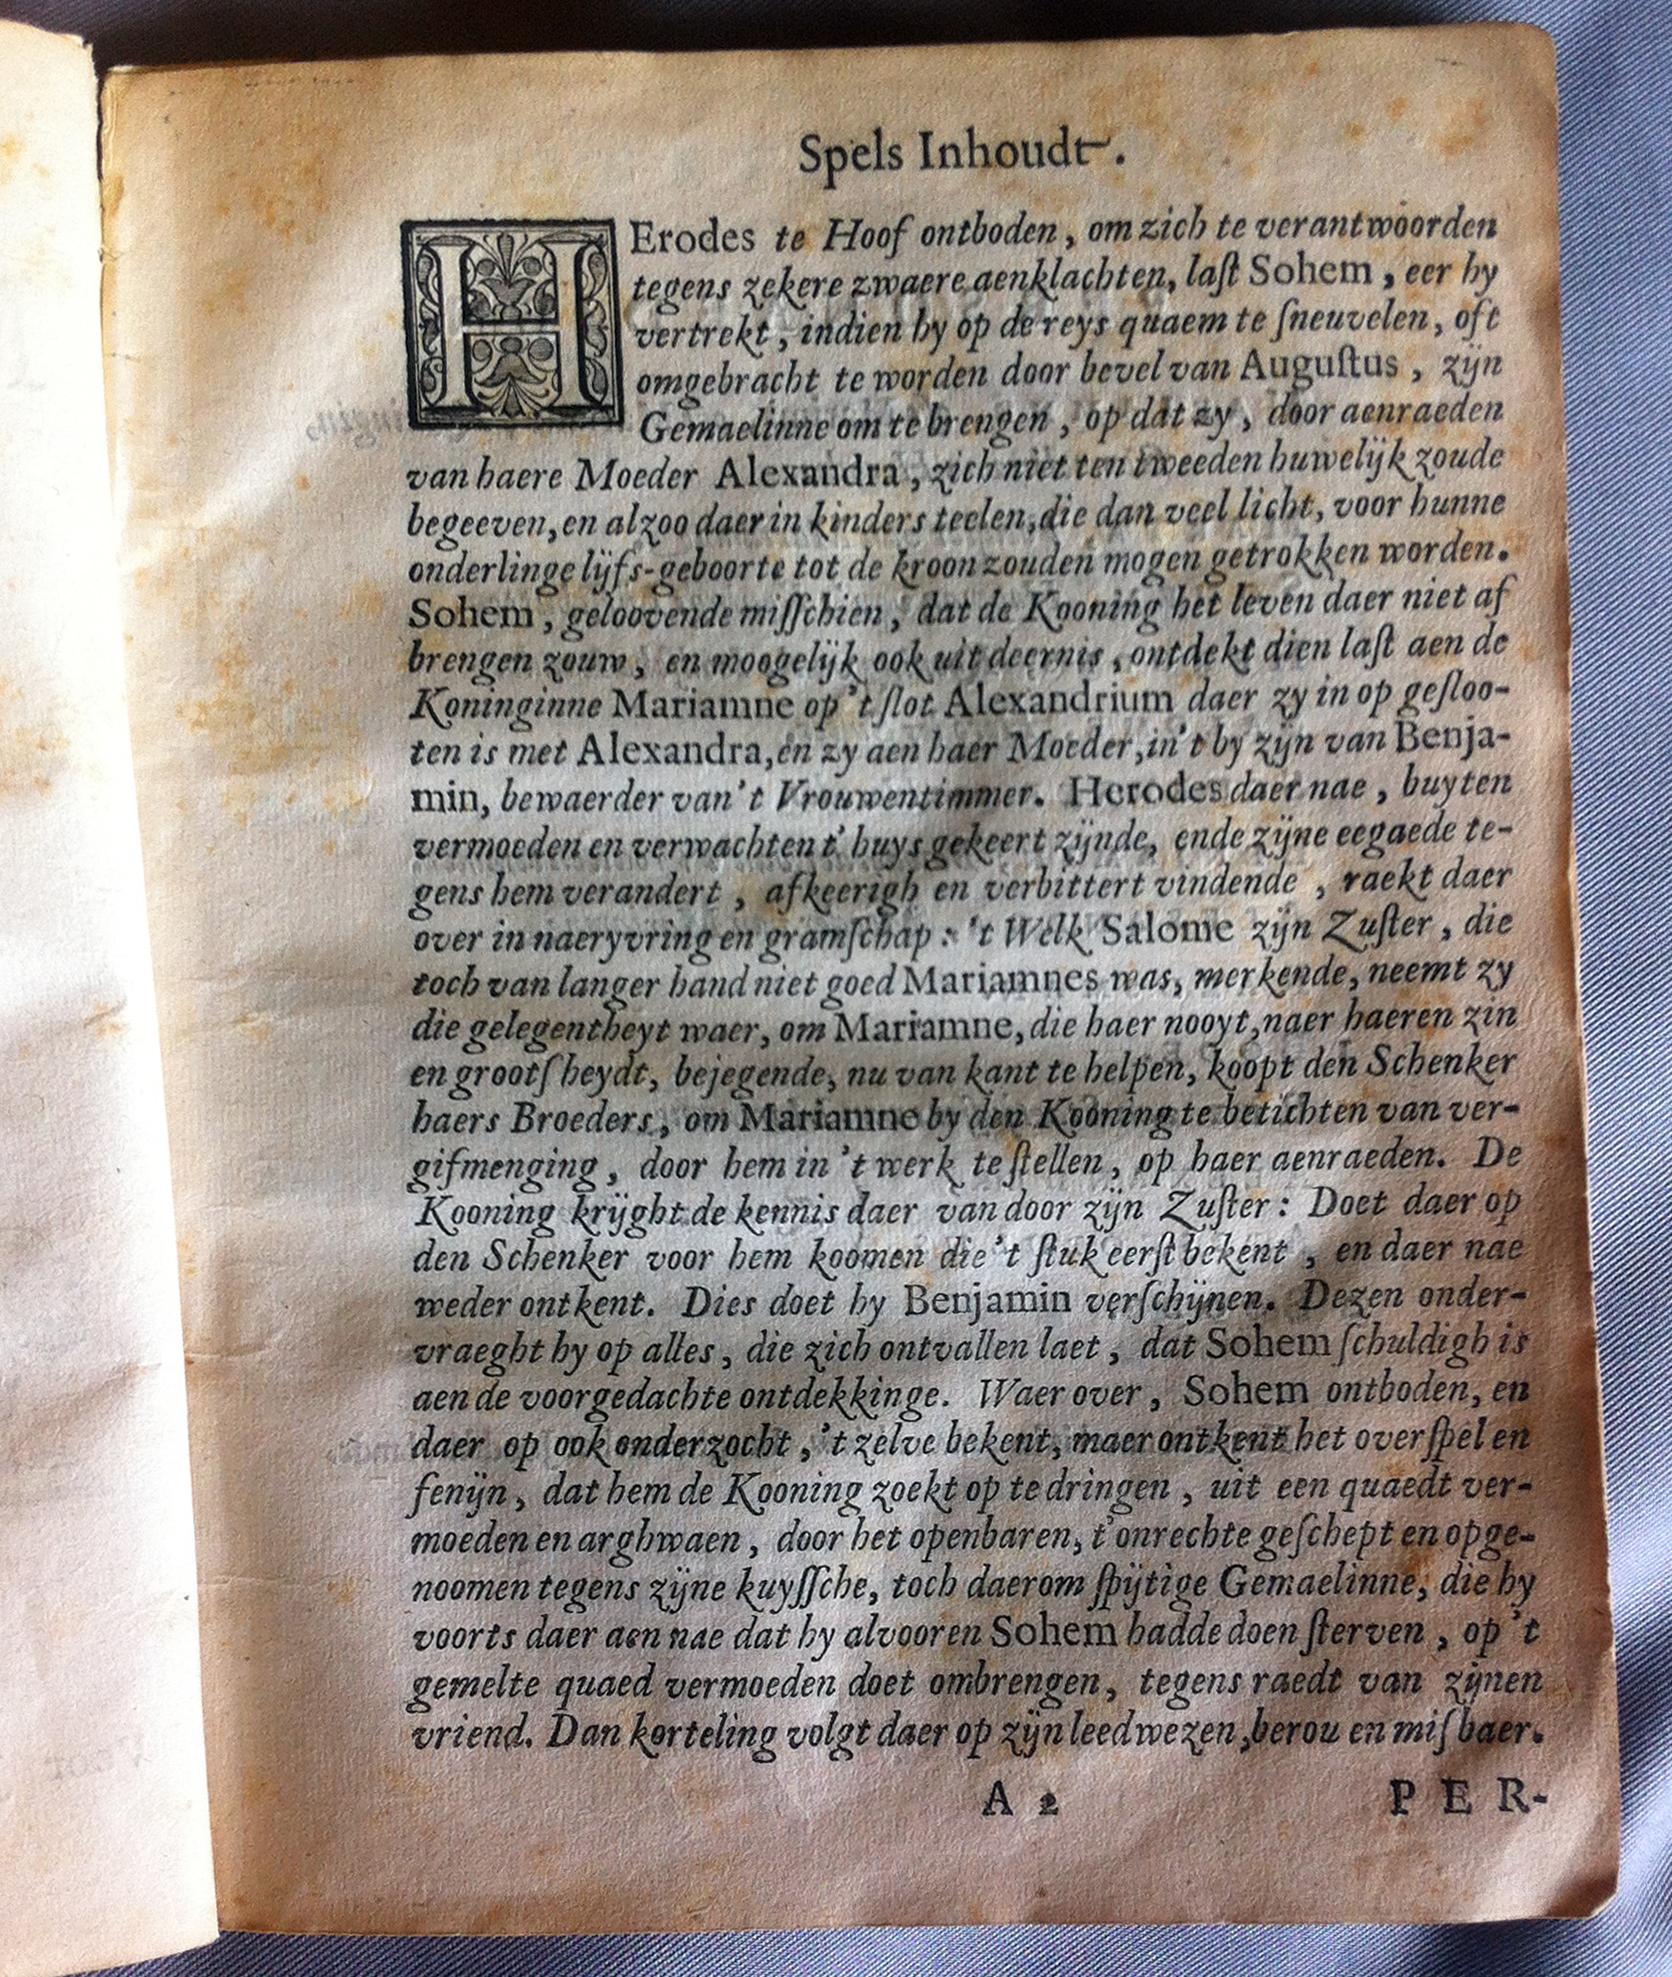 Spels Inhoudt.
HErodes te Hoof ontboden, om zich te verantwoorden
tegens zekere zwaere aenklachten, laſt Sohem, eer hy
vertrekt, indien hy op de reys quaem te ſneuvelen, oft
omgebracht te worden door bevel van Auguſtus, zijn
Gemaelinne om te brengen, op dat zy, door aenraeden
van haere Moeder Alexandra, zich niet ten tweeden huwelijk zoude
begeeven, en alzoo daer in kinders teelen, die dan veel licht, voor hunne
onderlinge lijfs-geboorte tot de kroon zouden mogen getrokken worden.
Sohem, geloovende miſſchien, dat de Kooning het leven daer niet af
brengen zouw, en moogelijk ook uit deernis, ontdekt dien laſt aen de
Koninginne Mariamne op 't ſlot Alexandrium daer zy in op geſloo-
ten is met Alexandra, en zy aen haer Moeder, in't by zijn van Benja-
min, bewaerder van't Vrouwentimmer. Herodes daer nae, buyten
vermoeden en verwachten t' huys gekeert zijnde, ende zijne eegaede te-
gens hem verandert, afkeerigh en verbittert vindende, raekt daer
over in naeryvring en gramſchap: 't Welk Salome zijn Zuſter, die
toch van langer hand niet goed Mariamnes was, merkende, neemt zy
die gelegentheyt waer, om Mariamne, die haer nooyt, naer haeren zin
en grootſheydt, bejegende, nu van kant te helpen, koopt den Schenker
haers Broeders, om Mariamne by den Kooning te betichten van ver-
gifmenging, door hem in 't werk te ſtellen, op haer aenraeden. De
Kooning krijght de kennis daer van door zijn Zuſter: Doet daer op
den Schenker voor hem koomen die 't ſtuk eerſt bekent, en daer nae
weder ontkent. Dies doet hy Benjamin verſchijnen. Dezen onder-
vraeght hy op alles, die zich ontvallen laet, dat Sohem ſchuldigh is
aen de voorgedachte ontdekkinge. Waer over, Sohem ontboden, en
daer op ook onderzocht, 't zelve bekent, maer ontkent het overſpel en
fenijn, dat hem de Kooning zoekt op te dringen, uit een quaedt ver-
moeden en arghwaen, door het openbaren, t' onrechte geſchept en opge-
noomen tegens zijne kuyſſche, toch daerom ſpijtige Gemaelinne, die hy
voorts daer aen nae dat hy alvooren Sohem hadde doen ſterven, op 't
gemelte quaed vermoeden doet ombrengen, tegens raedt van zijnen
vriend. Dan korteling volgt daer op zijn leedwezen, berou en miſbaer.
A 2 PER-